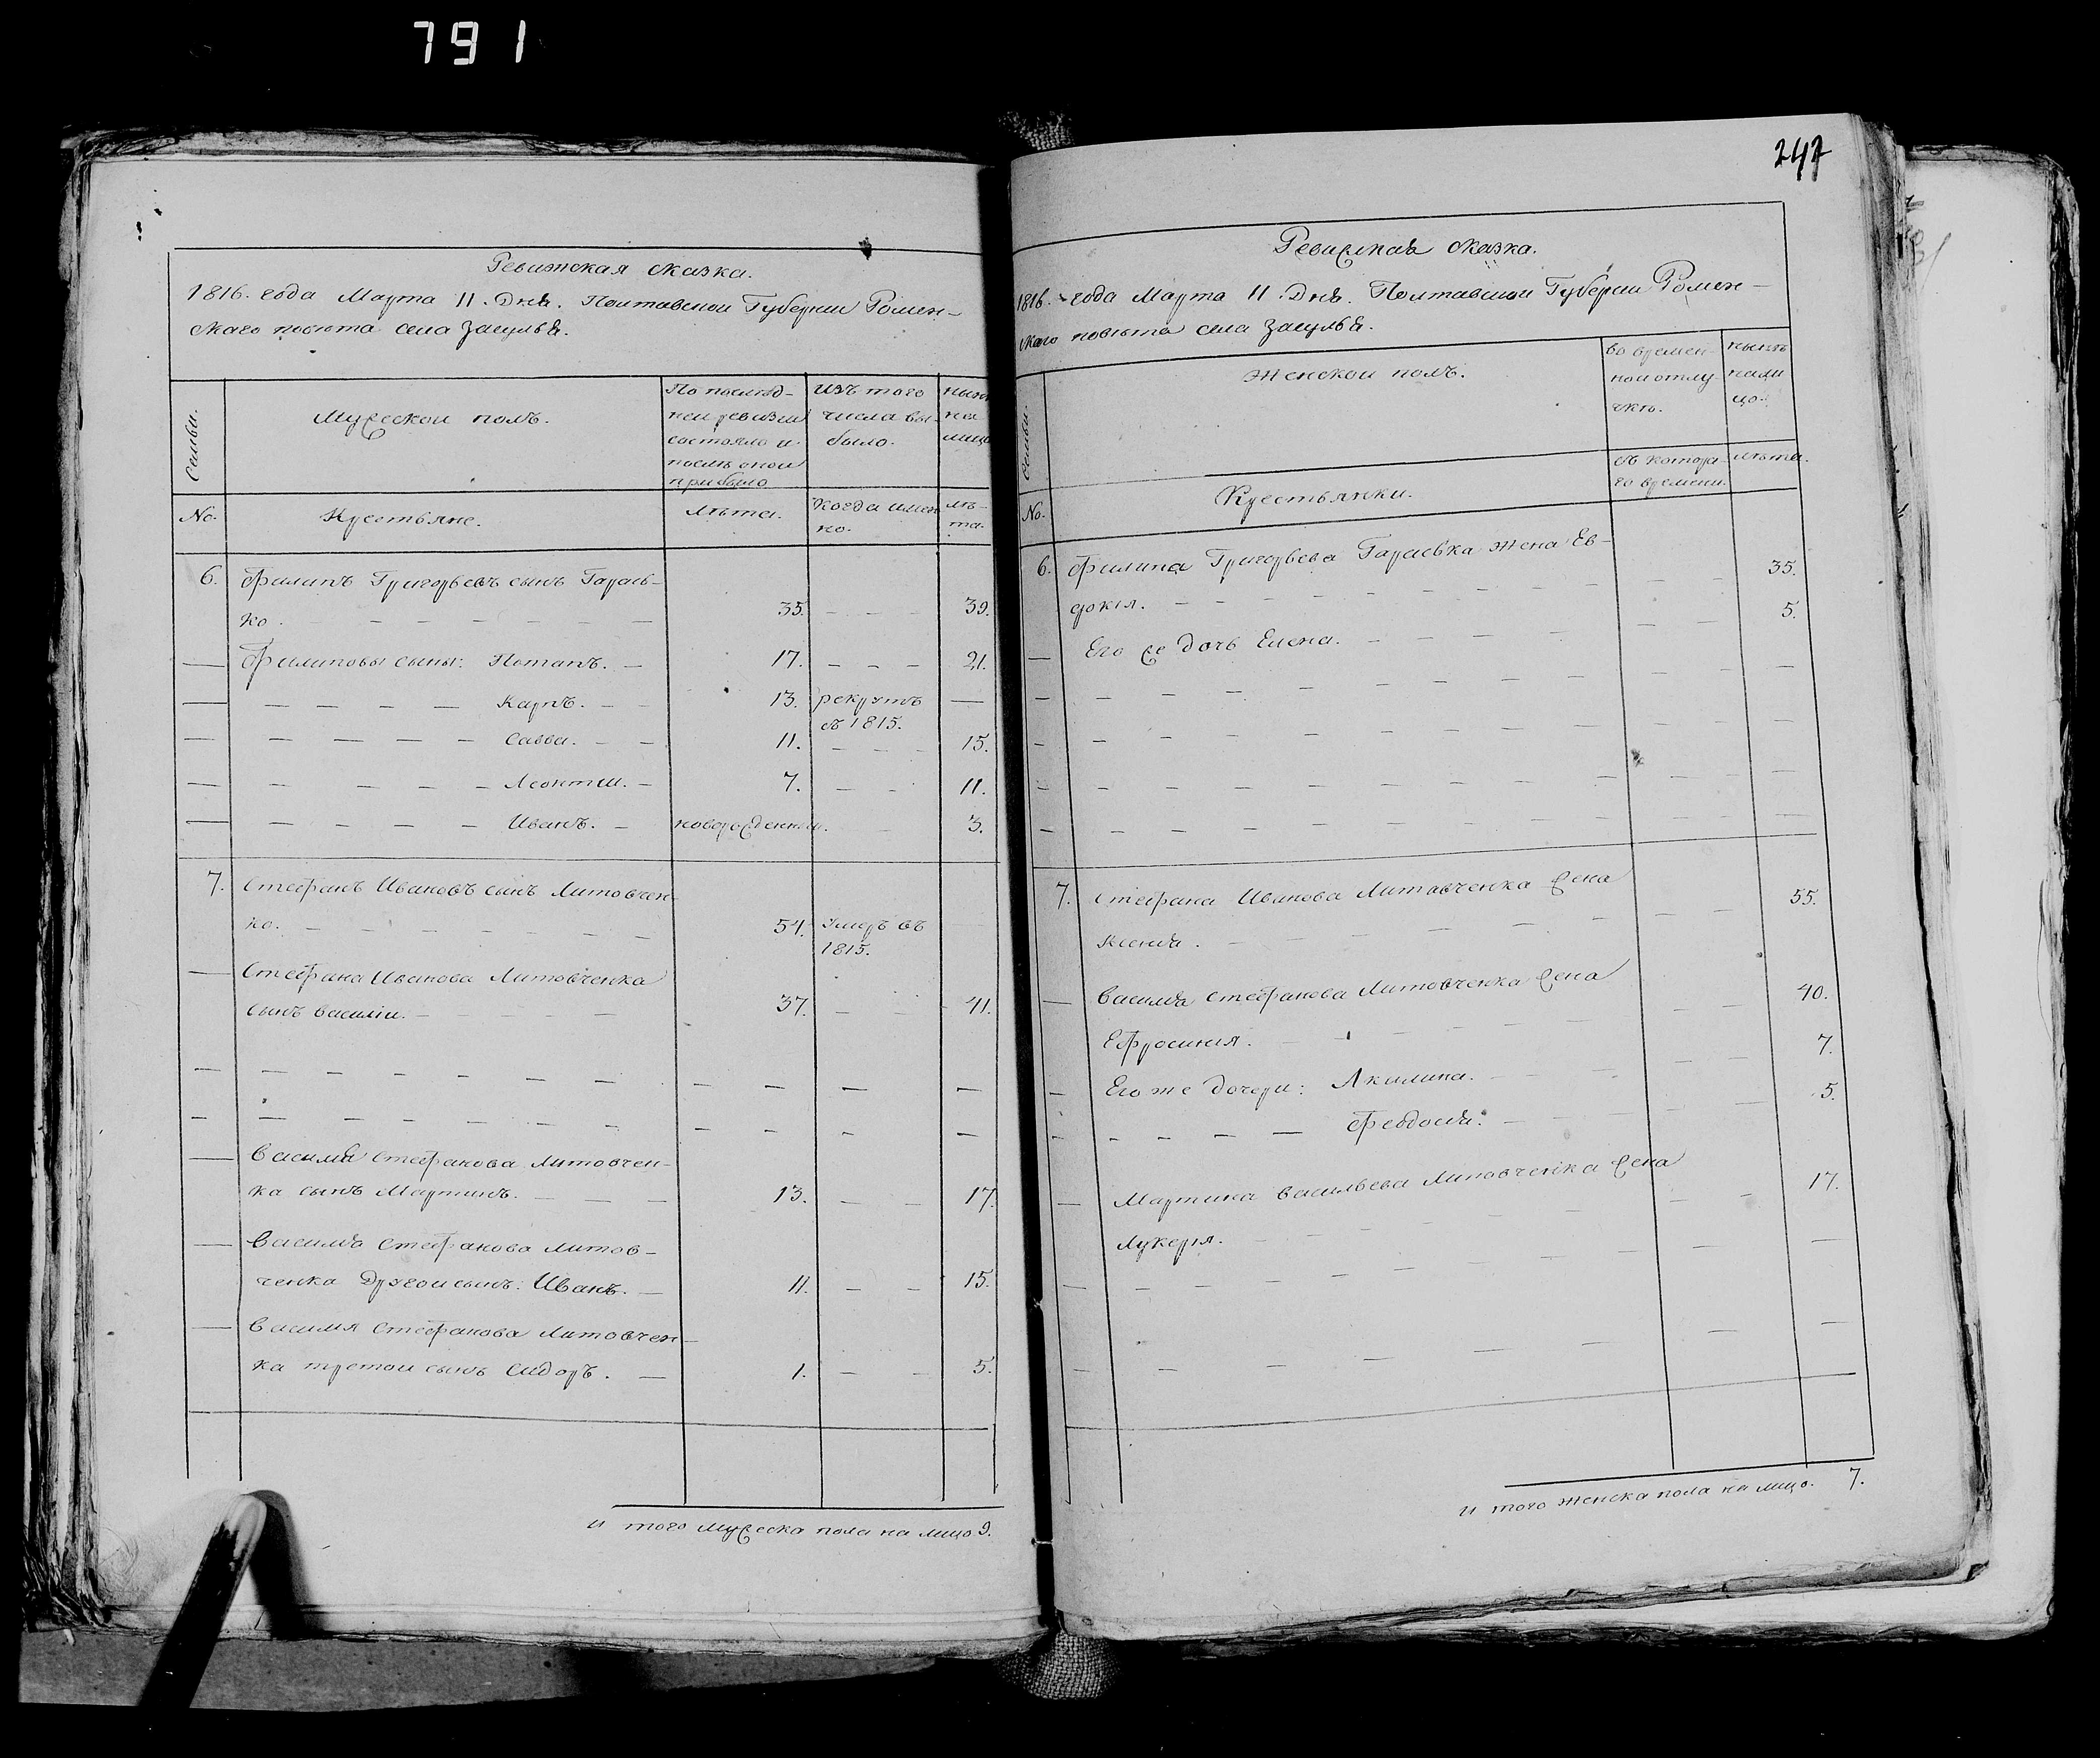 791
Ревижская сказка.
1816. года Марта 11. Дня. Полтавской Губернии Ромен-
скаго повѣта села Засулья.
Семьи.
Мужескои полъ.
По послѣд-
ней ревизии
состояло и
послѣ онои
прибыло
Изъ того
числа вы-
было.
нынѣ
на
лицо
No.
Крестьяне.
Лѣта.
Когда имен
но.
лѣ-
та.
6. Филипъ Григорьевъ сынъ Гарась-
ко. 35. 39.
Филиповы сыны: Потапъ. 17. 21.
Карпъ. 13. рекрутъ
въ 1815.
Савва. 11. 15.
Леонтии. 7. 11.
Иванъ. новорожденныи. 3.
7. Стефанъ Ивановъ сынъ Литовчен-
ко. 54. Умеръ въ
1815.
Стефана Иванова Литовченка
сынъ Василіи. 37. 41.
Василия Стефанова Литовчен-
ка сынъ Мартинъ. 13. 17.
Василия Стефанова Литов-
ченка Другои сынъ: Иванъ. 11. 15.
Василия Стефанова Литовчен-
ка третои сынъ Сидоръ. 1. 5.
и того мужеска пола на лицо 9.
247
Ревижская сказка.
1816. года Марта 11. Дня. Полтавской Губернии Ромен-
скаго повѣта села Засулья.
Семьи.
Женскои полъ.
во времен-
нои отлу-
чкѣ.
нынѣ
на ли
цо.
съ котора-
го времени.
лѣта.
No.
Крестьянки.
6. Филипа Григорьева Гараська жена Ев-
докія. 35.
Его же дочь Елена. 5.
7. Стефана Иванова Литовченка жена
Ксения. 55.
Василия Стефанова Литовченка жена
Ефросинія. 40.
Его же дочери: Акилина. 7.
Феодосия. 5.
Мартина Васильева Литовченка жена
Лукерія. 17.
и того женска пола на лицо. 7.